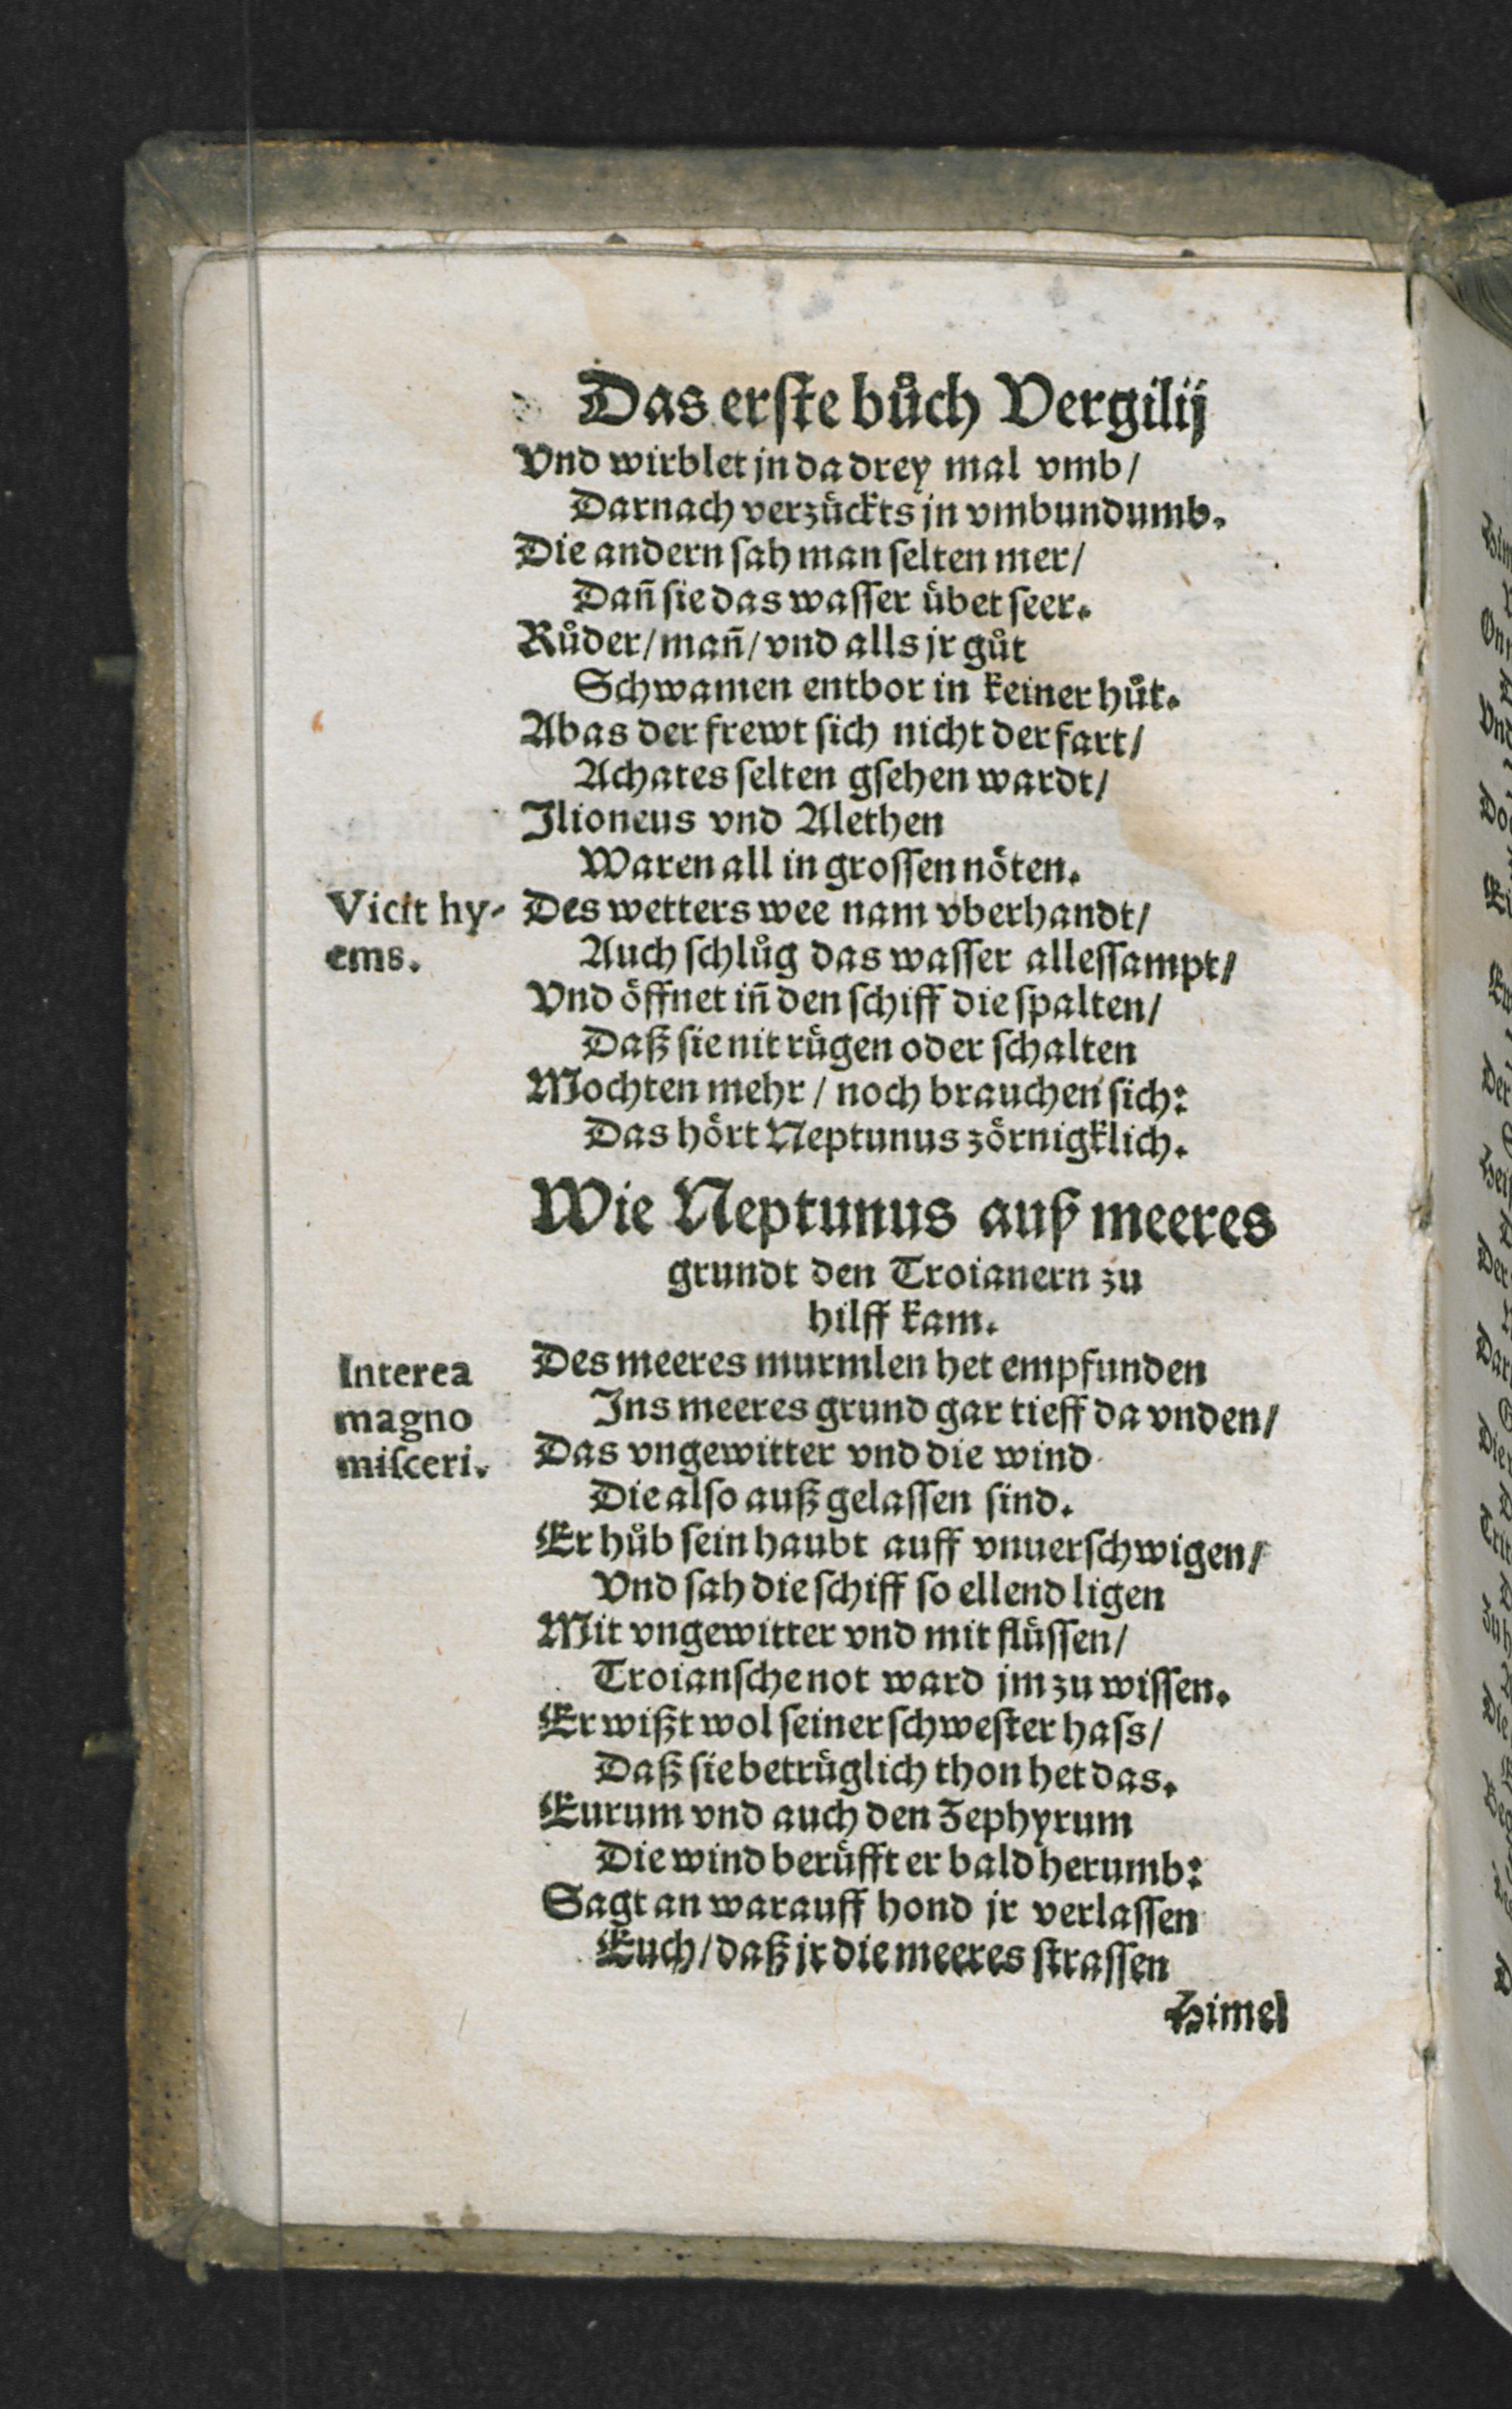 Das erste bůch Vergilij
Vnd wirblet jn da drey mal vmb/
Darnach verzückts jn vmbundumb.
Die andern sah man selten mer/
Dañ sie das wasser übet seer.
Růder/mañ/vnd alls jr gůt
Schwamen entbor in keiner hůt.
Abas der frewt sich nicht der fart/
Achates selten gsehen wardt/
Ilioneus vnd Alethen
Waren all in grossen nöten.
Vicit hy-
ems.
Des wetters wee nam vberhandt/
Auch schlůg das wasser allessampt/
Vnd öffnet iñ den schiff die spalten/
Daß sie nit rügen oder schalten
Mochten mehr / noch brauchen sich:
Das hört Neptunus zörnigklich.
Wie Neptunus auß meeres
grundt den Troianern zu
hilff kam.
Interea
magno
misceri.
Des meeres murmlen het empfunden
Ins meeres grund gar tieff da vnden/
Das vngewitter vnd die wind
Die also auß gelassen sind.
Er hůb sein haubt auff vnuerschwigen/
Vnd sah die schiff so ellend ligen
Mit vngewitter vnd mit flüssen/
Troiansche not ward jm zu wissen.
Er wißt wol seiner schwester hass/
Daß sie betrüglich thon het das.
Eurum vnd auch den Zephyrum
Die wind berüfft er bald herumb:
Sagt an warauff hond jr verlassen
Euch/daß jr die meeres strassen
Himel